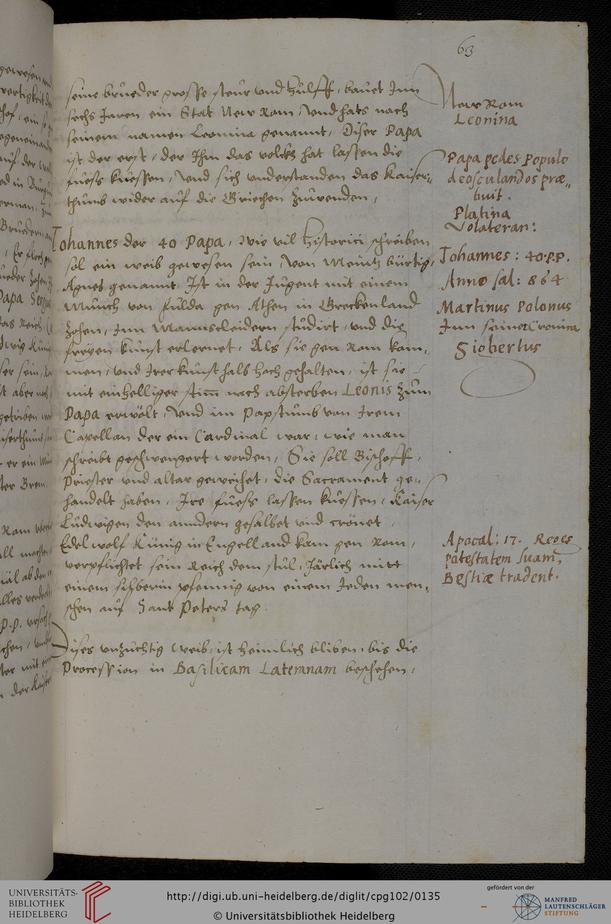 63
seine brueder grosse steur vnd hülff, bauet Inn
sechs Jaren ein Stat Neu Rom, vnd hats nach
seinem namen Leonina genannt, Diser Papa
ist der erst, der Ihm das volckh hat lassen die
füess küessen, vnd sich vnderstanden das Kaiser-
thumb wider auf die Griechen zuwenden,
Neu Rom
Leonina
Papa pedes Populo
deosculandos præ-
buit.
Platina
Volateran:
Johannes der 40 Papa, wie vil Historici schreiben
sol ein weib gewesen sein, von Meintz bürtig,
Agnes genannt, Ist in der Jugent mit einem
Münch von Fulda gen Athen in Grecken Land
zohen, Inn Mannscleidern studirt, vnd die
freyen kunst erlernet, Als sie gen Rom kom-
men, vnd Irer kunst halb hoch gehalten, ist sie
mit einhelliger stim nach absterben Leonis zum
Papa erwölt, vnd im Papstumb von Irem
Capellan der ein Cardinal war, wie man
schreibt geschwengert worden, Sie soll Bischoff,
Priester vnd altar geweihet, die Sacrament ge-
handelt haben, Ire füess lassen küessen, Kaiser
Ludwigen den anndern gesalbet vnd crönet,
Edelwolf Künig in Engelland kam gen Rom,
verpflichtet sein Reich dem stul, Järlich mitt
einem silberin pfennig von einem Jeden men-
schen auf Sant Peters tag.
Johannes: 40. P.P.
Anno sal: 864
Martinus Polonus
Inn seiner Cronica
Sigbertus
Apocal: 17. Reges
potestatem suam,
Bestiæ tradent.
Dises vnzüchtig weib, ist heimlich bliben, bis die
Procession in Basilicam Lateranam beschehen,
UNIVERSITÄTS-
BIBLIOTHEK
HEIDELBERG
http://digi.ub.uni-heidelberg.de/diglit/cpg102/0135
© Universitätsbibliothek Heidelberg
gefördert von der
MANFRED
LAUTENSCHLÄGER
STIFTUNG